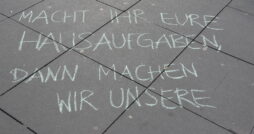 MACHT IHR EURE
HAUSAUFGABEN,
DANN MACHEN
WIR UNSERE